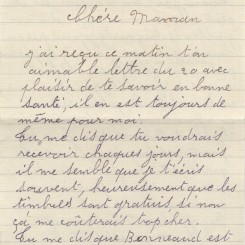 Chére Maman
j'ai reçu ce matin t'on
aimable lettre du 20 avec
plaisir de te savoir en bonne
santé, il en est toujours de
même pour moi.
Tu, me dis que tu voudrais
recevoir chaques jours, mais
il me semble que je t'écris
souvent, heureusement que les
timbres sont gratuis si non
ça me coûterais trop cher.
Tu me dis que Borneaud est